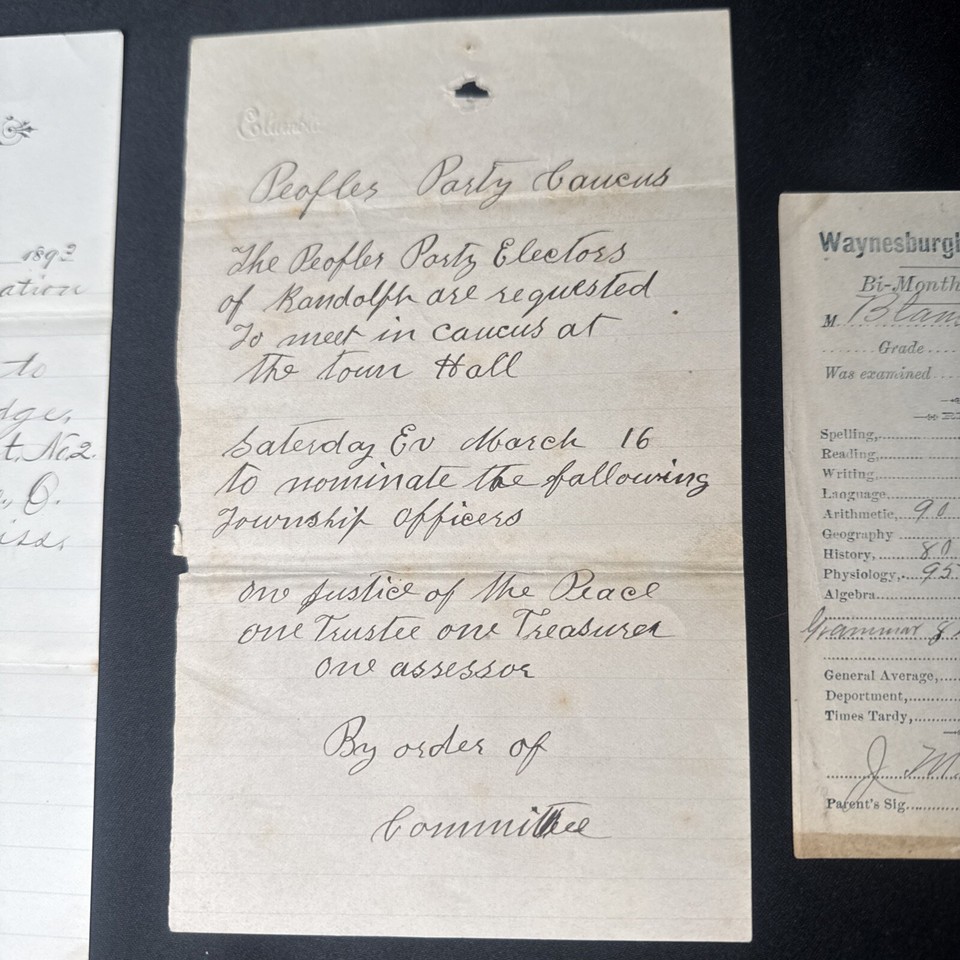 1893
ation
to
dge,
t. No. 2.
O.
iss.
Columbia
Peoples Party Caucus
The Peoples Party Electors
of Randolph are requested
To meet in caucus at
the town Hall
Saterday Ev March 16
to nominate the fallowing
Township officers
one Justice of the Peace
one Trustee one Treasurer
one assessor
By order of
Committee
Waynesburg
Bi-Month
M Blan
Grade
Was examined
Spelling,
Reading,
Writing,
Language
Arithmetic, 90
Geography
History, 80
Physiology, 95
Algebra
Grammar 8
General Average,
Deportment,
Times Tardy,
J M
Parent's Sig.